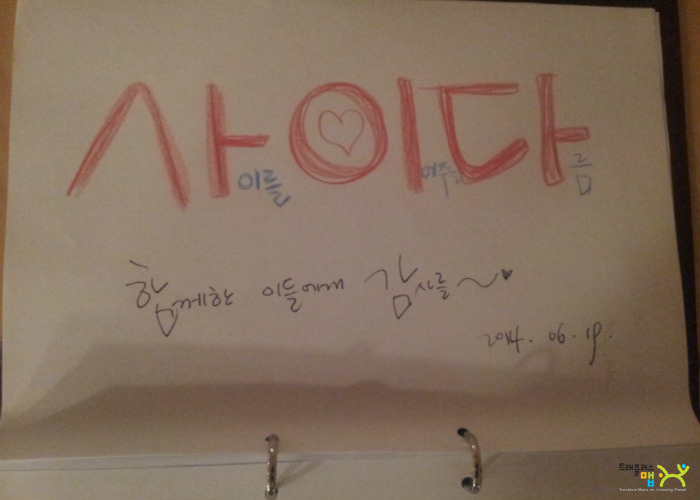 사이다
이를 어주는 름
함께한 이들에게 감사를~♥
2014. 06. 19.
트래블러스
맵
Travelers Make an Amazing Planet